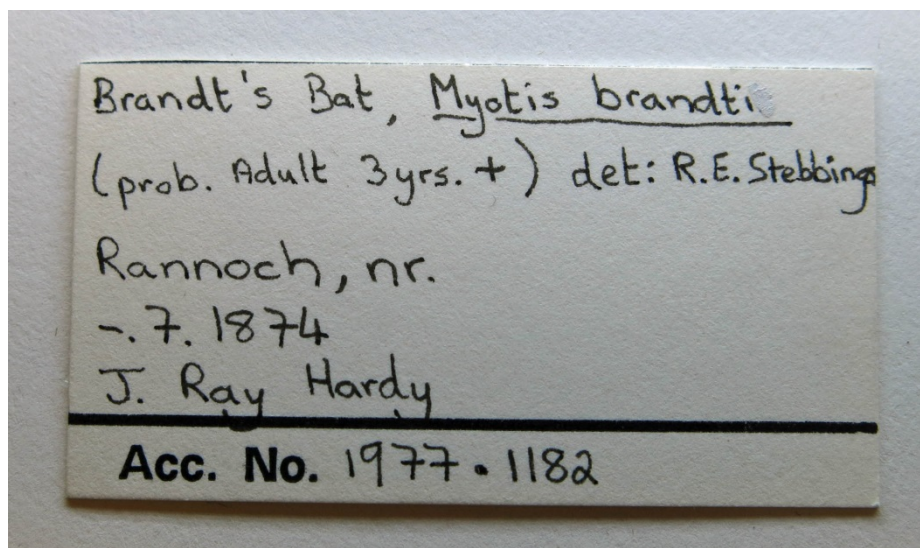 Brandt's Bat, Myotis brandti
(prob. Adult 3yrs. +) det: R.E. Stebbings
Rannoch, nr.
-.7.1874
J. Ray Hardy
Acc. No. 1977.1182